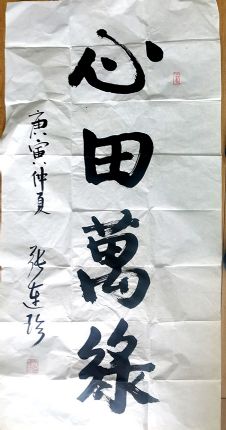 心田萬綠
庚寅仲夏 張連珍